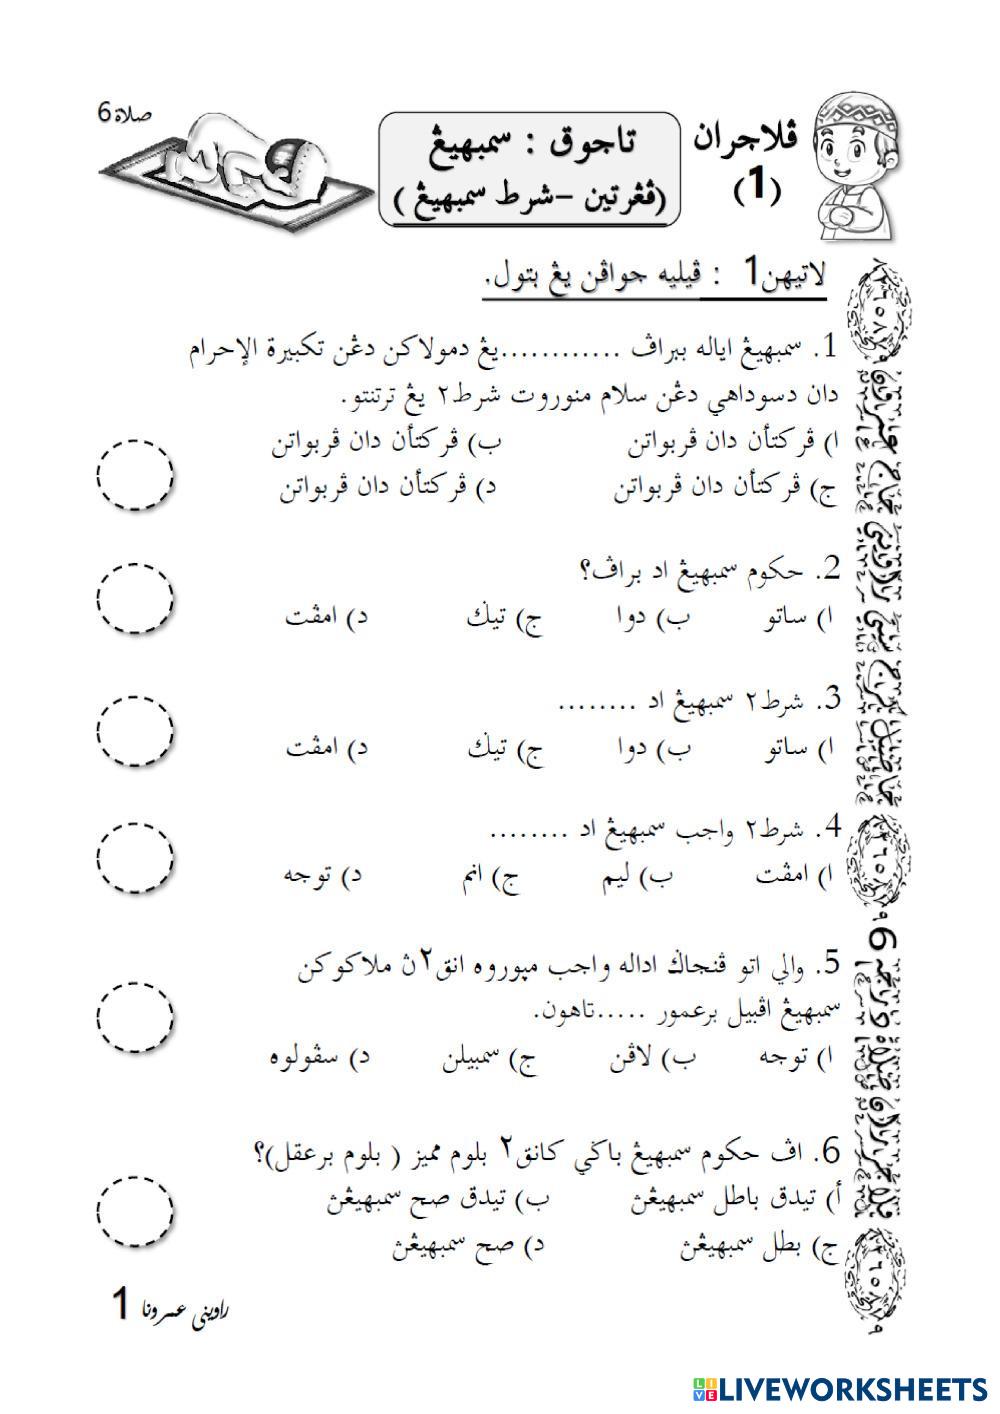 صلاة 6
ڤلاجران
(1)
تاجوق : سمبهيڠ
(ڤڠرتين –شرط سمبهيڠ )
لاتيهن1 : ڤيليه جواڤن يڠ بتول.
1. سمبهيڠ اياله ببراڤ ............يڠ دمولاكن دڠن تكبيرة الإحرام
دان دسوداهي دڠن سلام منوروت شرط٢ يڠ ترتنتو.
ا) ڤركتأن دان ڤربواتن ب) ڤركتأن دان ڤربواتن
ج) ڤركتأن دان ڤربواتن د) ڤركتأن دان ڤربواتن
2. حكوم سمبهيڠ اد براڤ؟
ا) ساتو ب) دوا ج) تيݢ د) امڤت
3. شرط٢ سمبهيڠ اد ........
ا) ساتو ب) دوا ج) تيݢ د) امڤت
4. شرط٢ واجب سمبهيڠ اد ........
ا) امڤت ب) ليم ج) انم د) توجه
5. والي اتو ڤنجاݢ اداله واجب مڽوروه انق٢ڽ ملاكوكن
سمبهيڠ اڤبيل برعمور .....تاهون.
ا) توجه ب) لاڤن ج) سمبيلن د) سڤولوه
6. اڤ حكوم سمبهيڠ باݢي كانق٢ بلوم مميز ( بلوم برعقل)؟
أ) تيدق باطل سمبهيڠڽ ب) تيدق صح سمبهيڠڽ
ج) بطل سمبهيڠڽ د) صح سمبهيڠڽ
1
LIVEWORKSHEETS